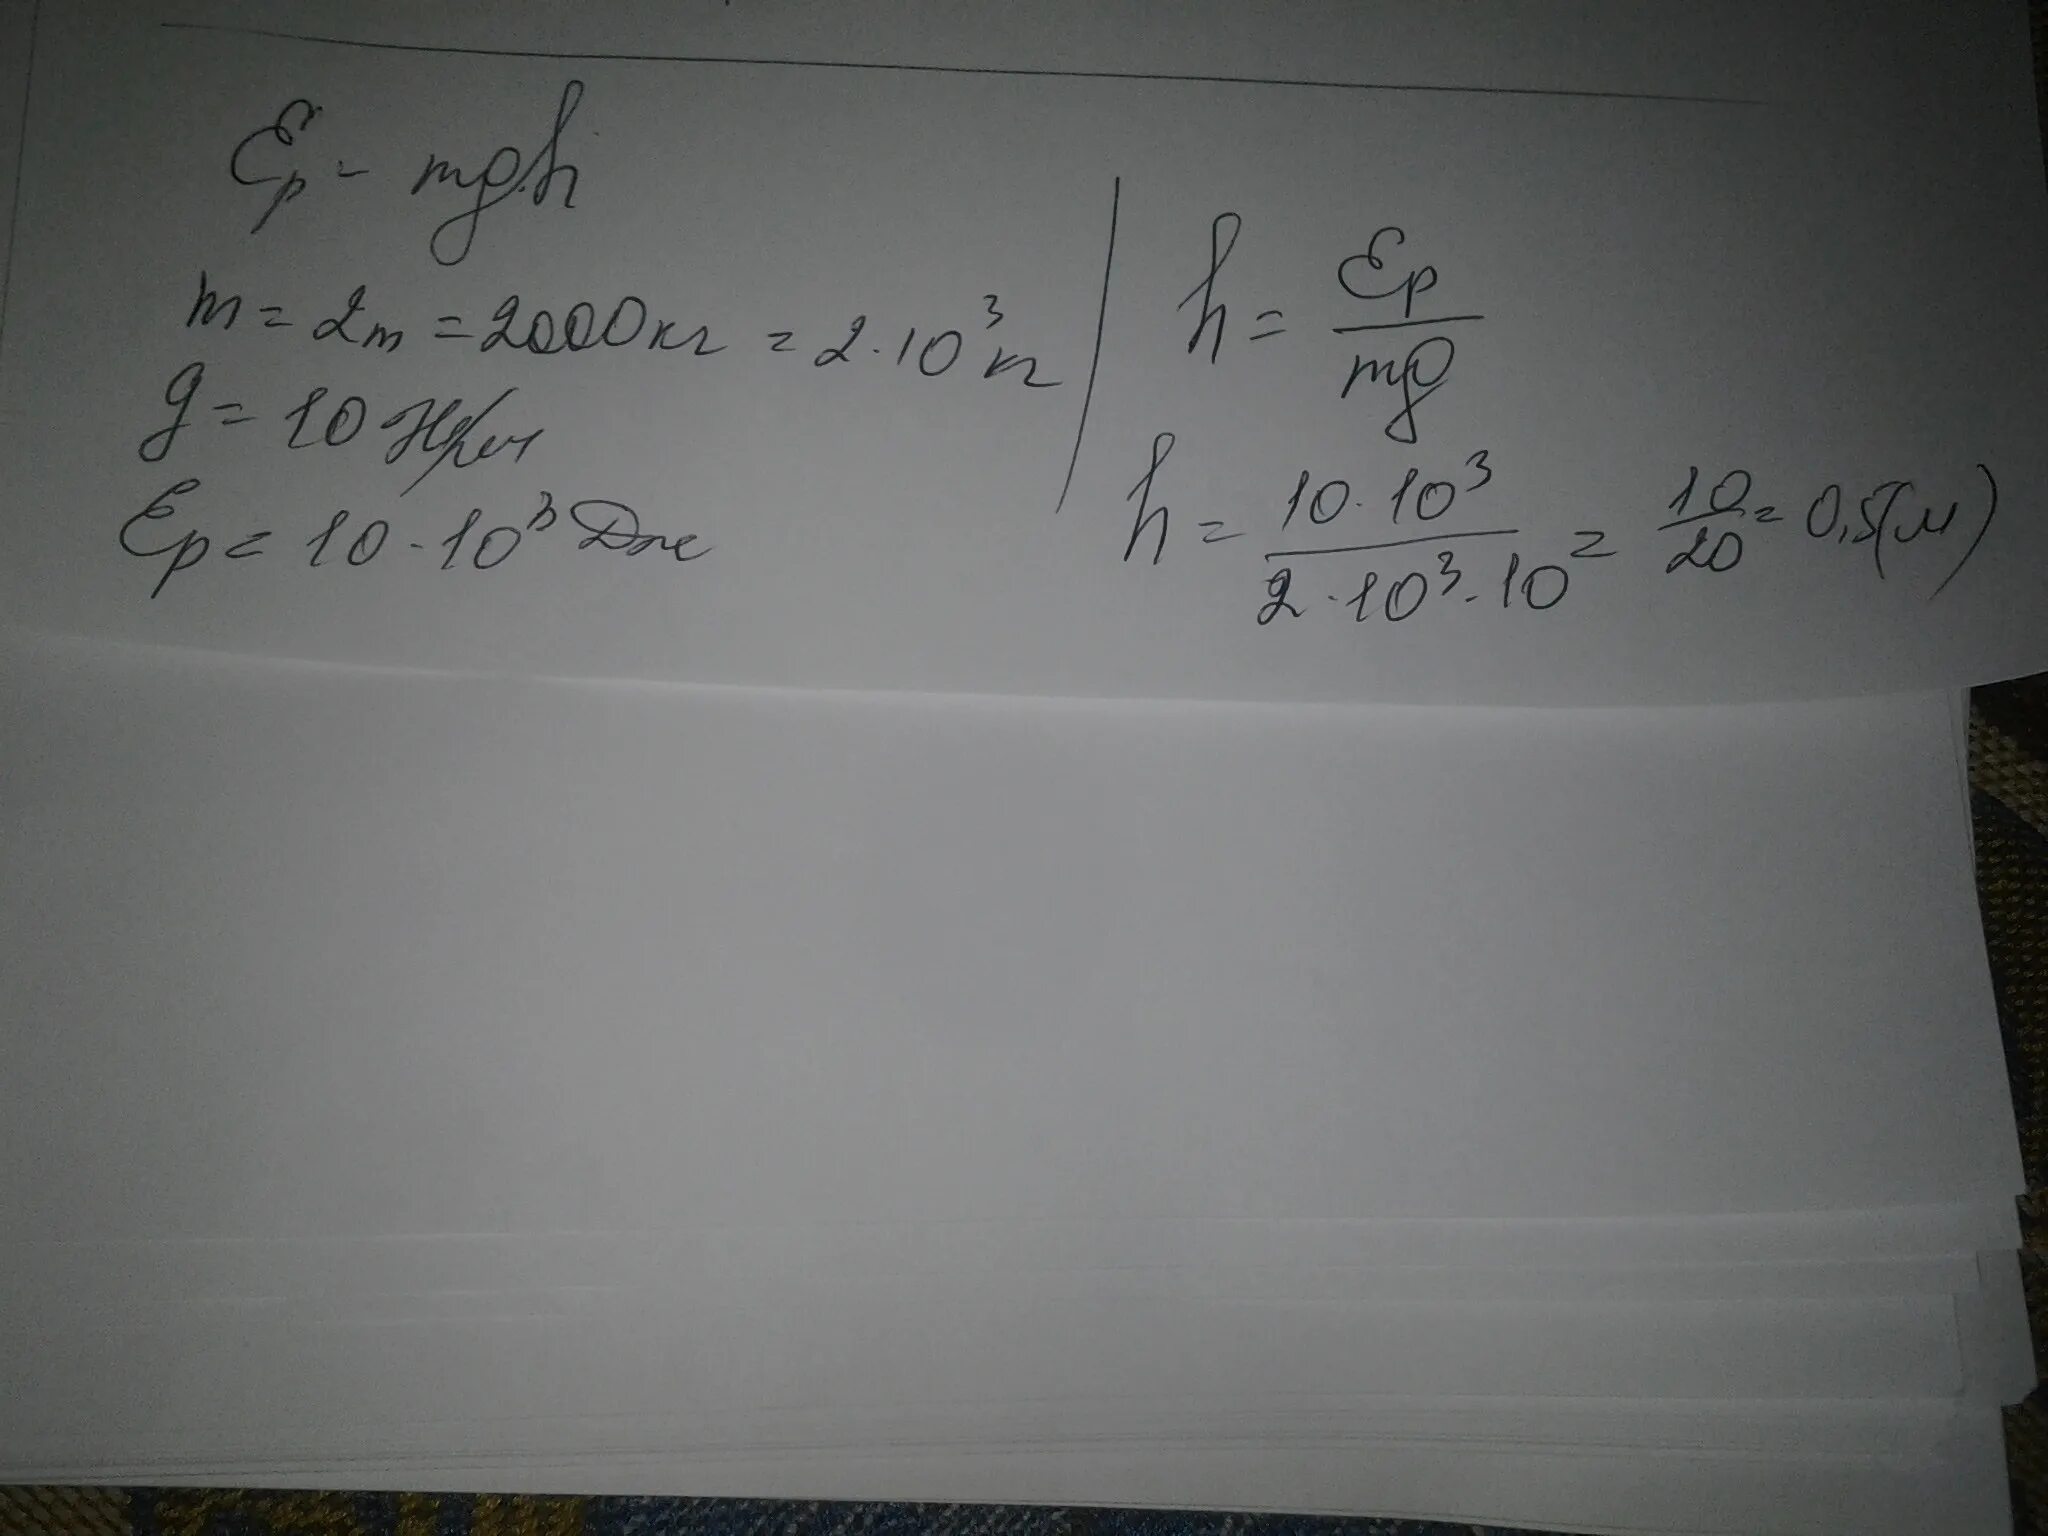 Eₚ = mgh
m = 2т = 2000кг = 2·10³кг
g = 10 Н/кг
Eₚ = 10·10³ Дж
h = Eₚ/mg
h = 10·10³/2·10³·10 = 10/20 = 0,5(м)